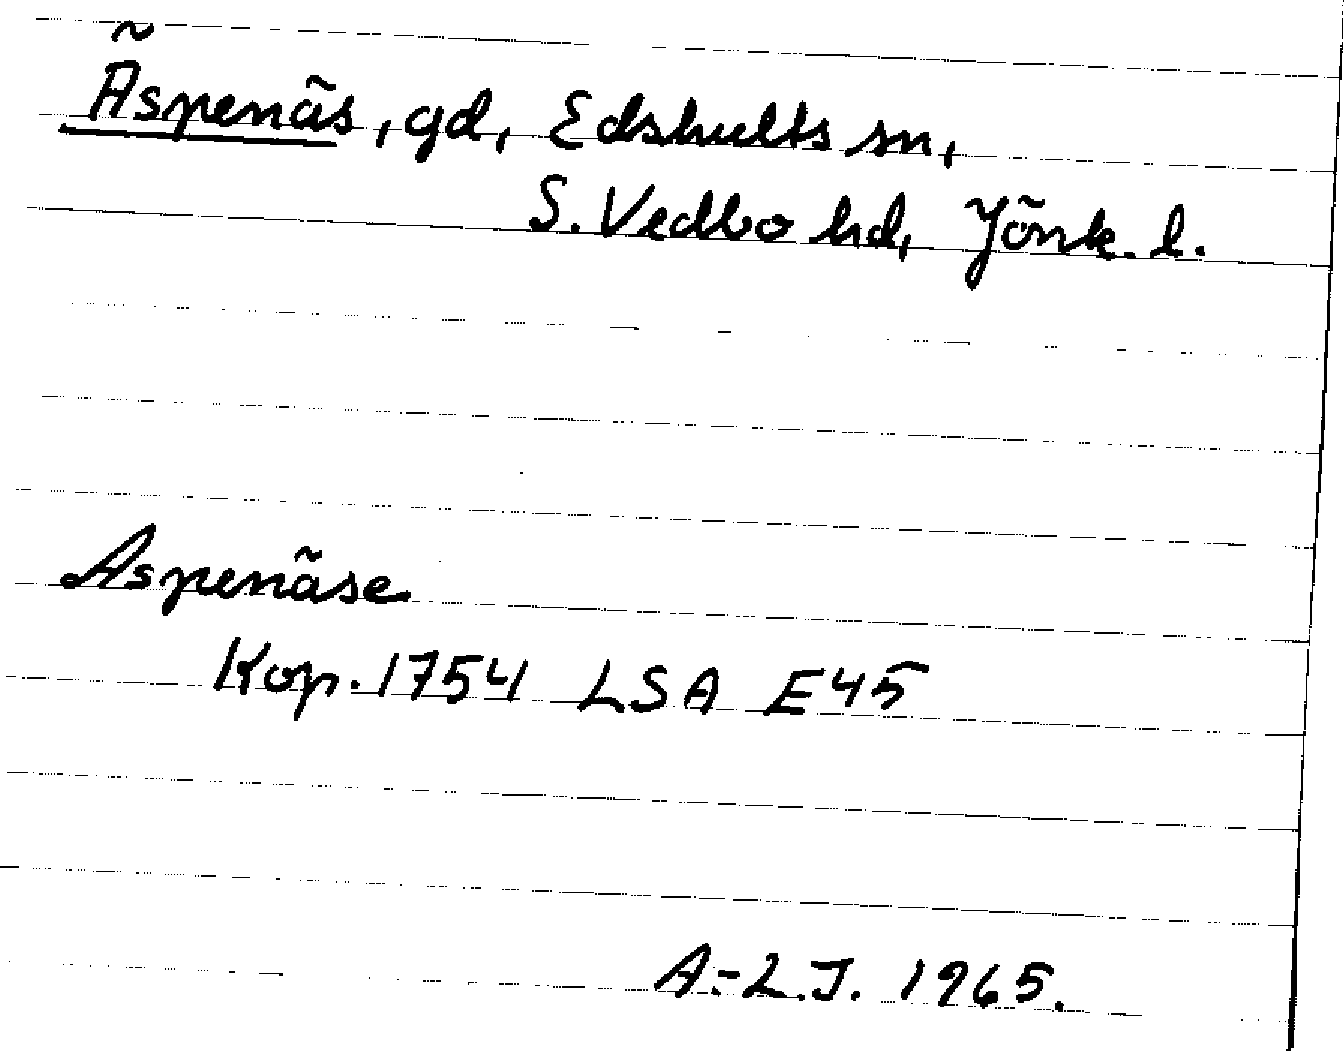 Äspenäs, gd, Edshults sn,
S. Vedbo hd, Jönk. l.
Aspenäse
Kop. 1754 LSA E45
A-L.J. 1965.